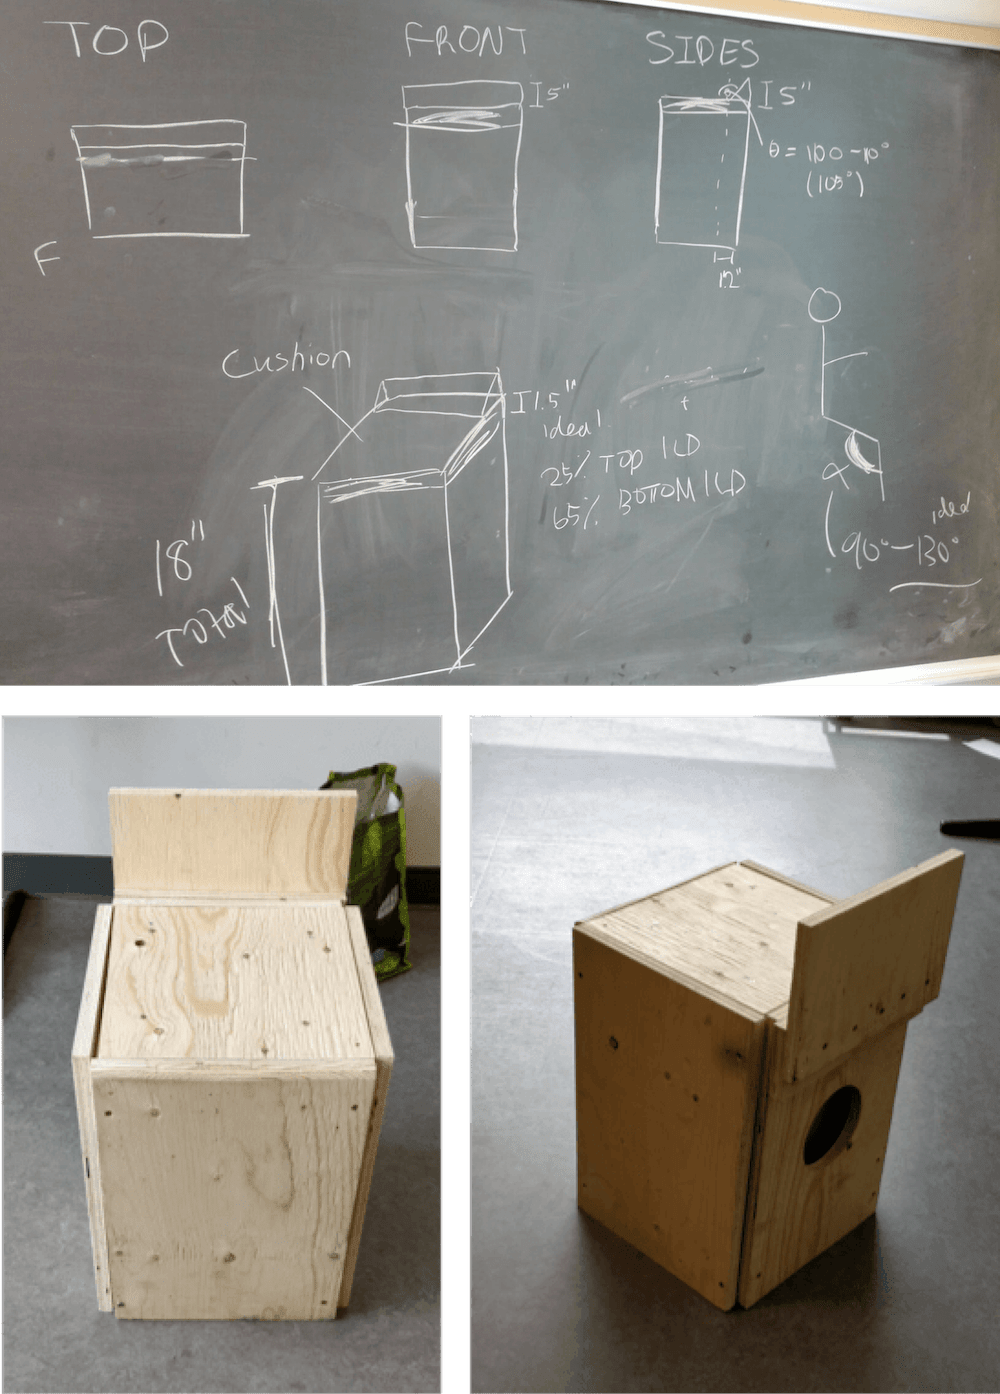 TOP
FRONT
SIDES
5"
5"
θ = 100-110°
(105°)
F
Cushion
1.5"
ideal
25% TOP ILD
+
65% BOTTOM ILD
18"
ideal
90°-130°